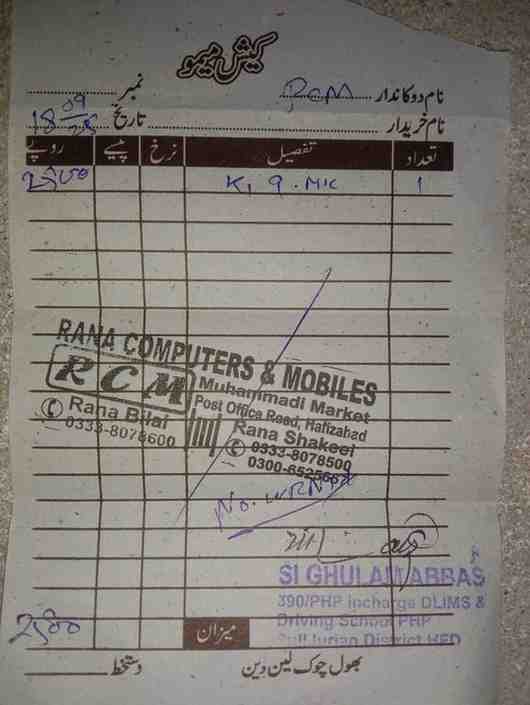 کیش میمو
نام دوکاندار RCM نمبر
نام خریدار تاریخ 18 09
تعداد تفصیل نرخ پیسے روپے
1 K, 9. MIC 2500
RANA COMPUTERS & MOBILES
RCM
Muhammadi Market
Post Office Road, Hafizabad
Rana Bilal
0333-8078600
Rana Shakeel
0333-8078500
No. WRNTY
SI GHULAM ABBAS
390/PHP Incharge DLIMS &
Driving School PHP
District HFD
میزان 2500
بھول چوک لین دین دستخط